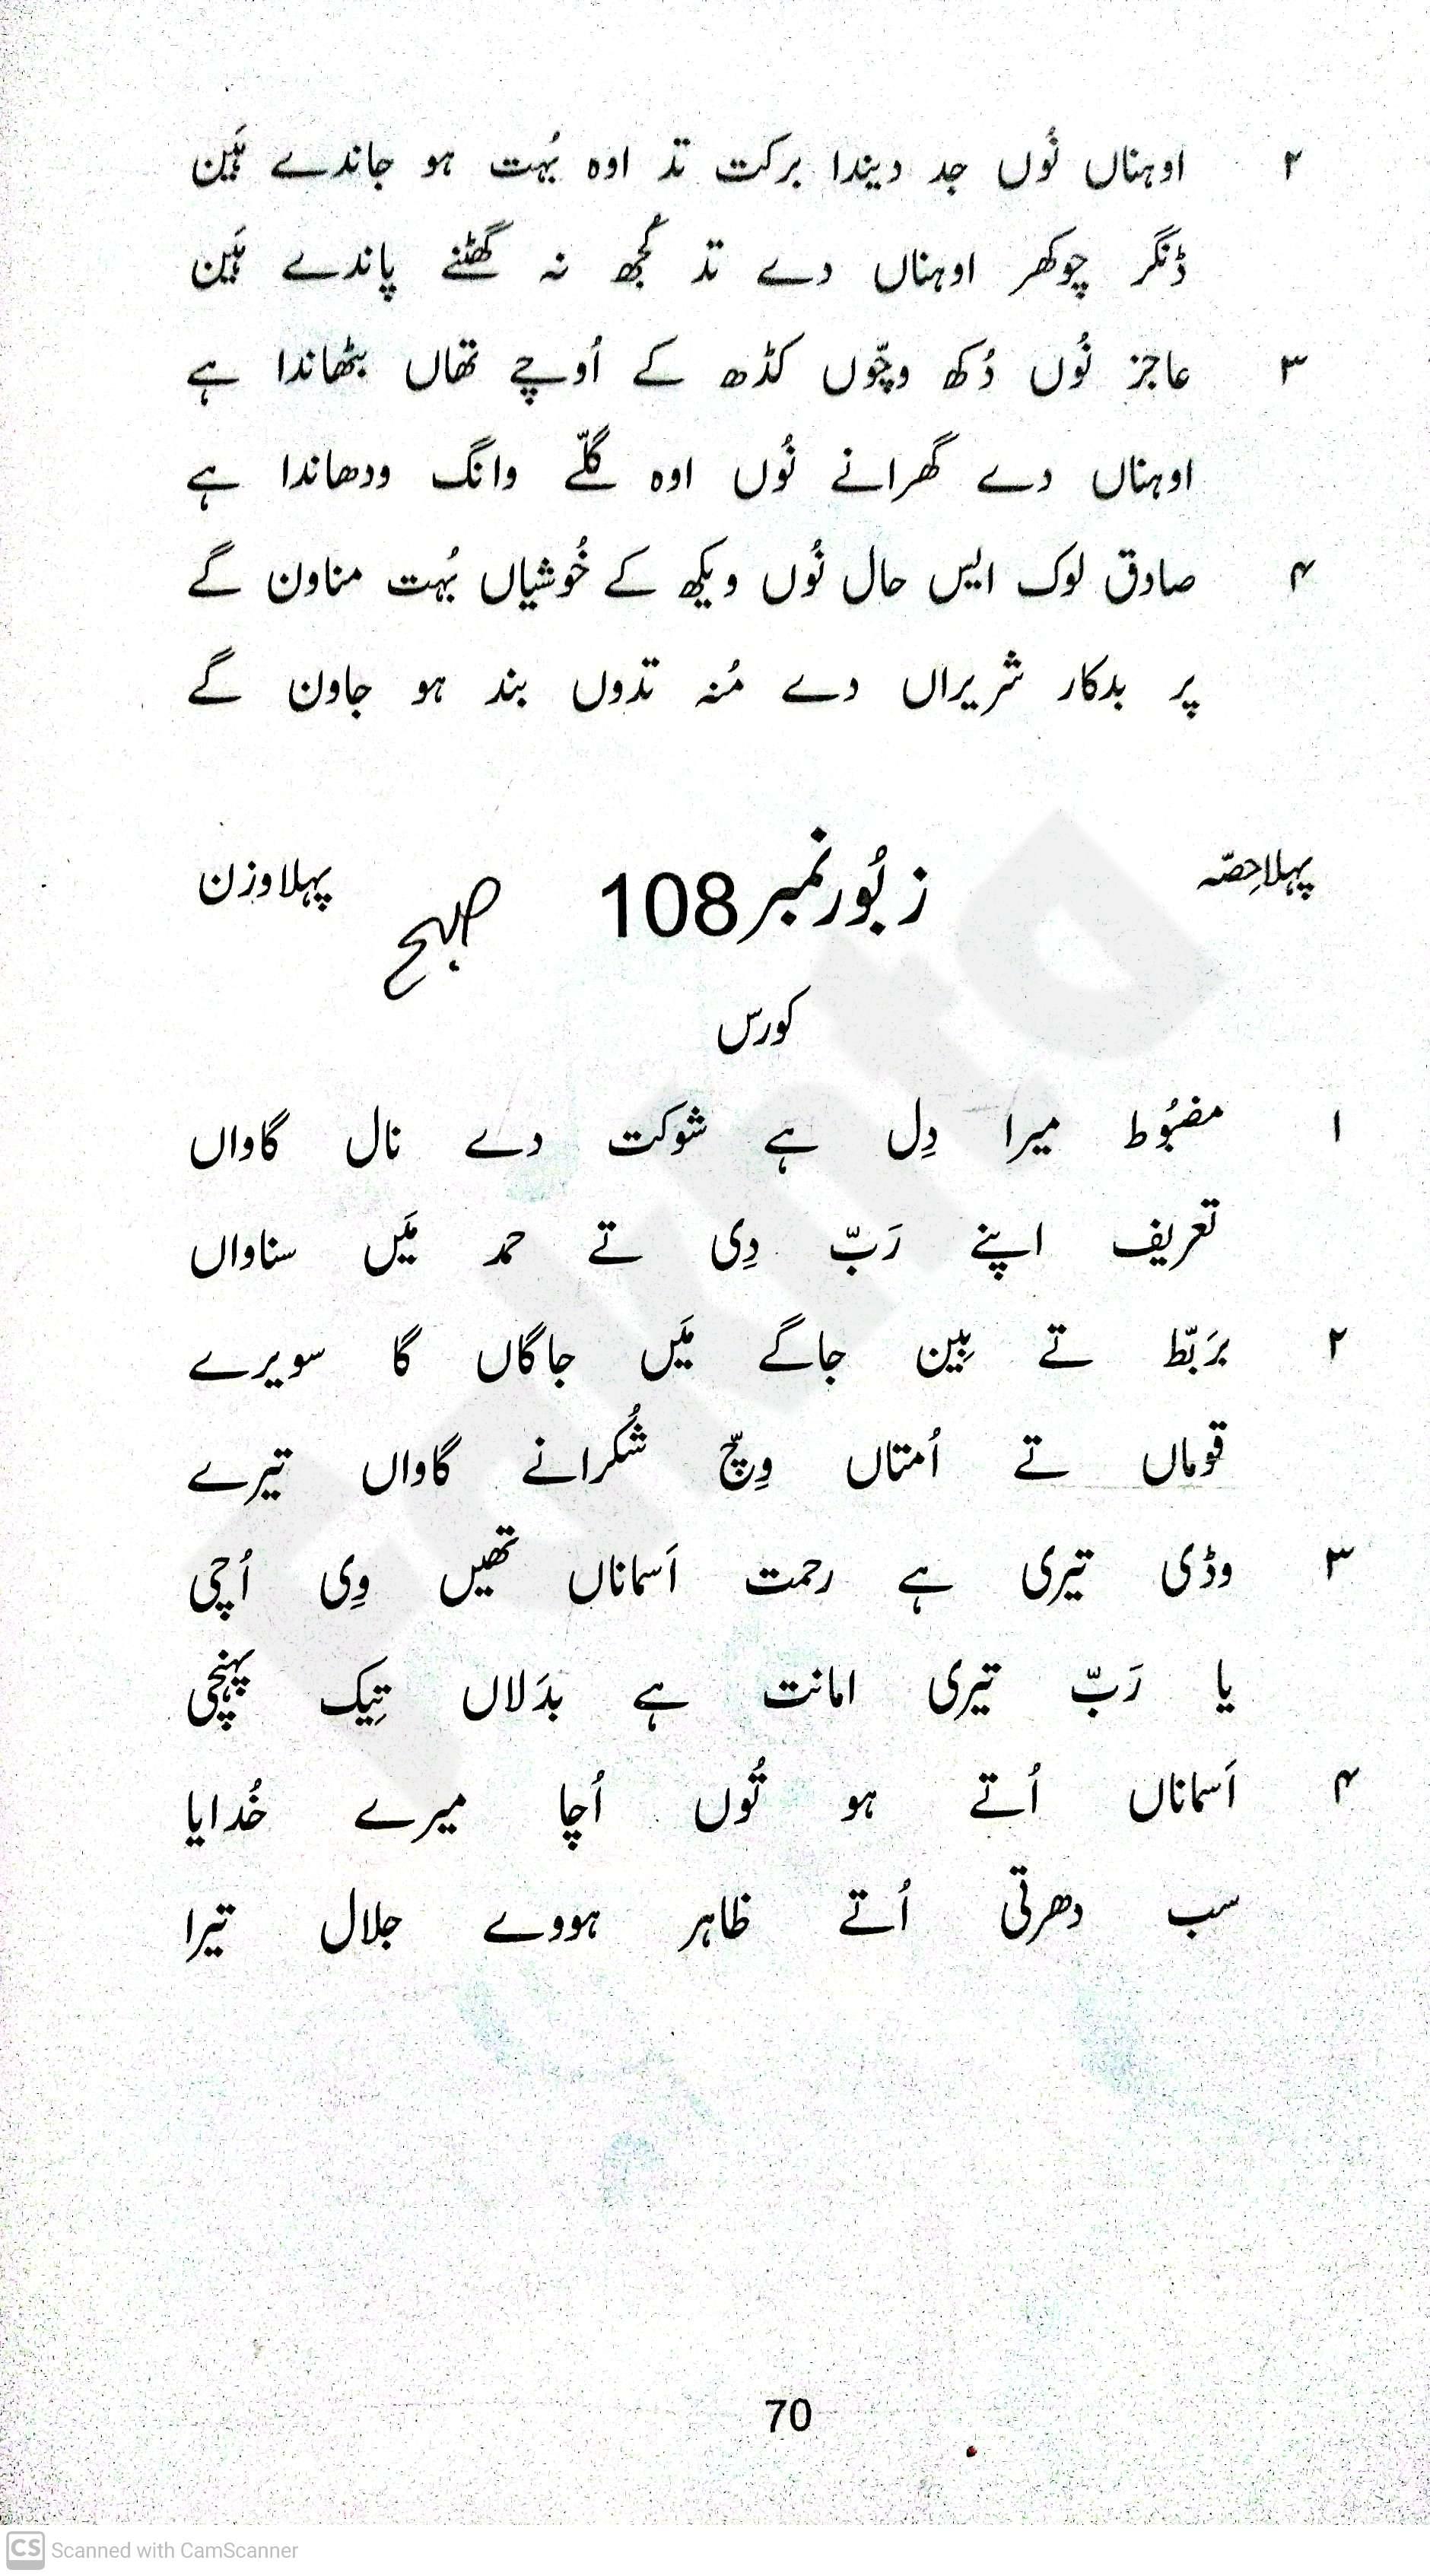 ۲ اوہناں نُوں جد دیندا برکت تد اوہ بُہت ہو جاندے ہَین
ڈنگر چوکھر اوہناں دے تد کُجھ نہ گھٹنے پاندے ہَین
۳ عاجز نُوں دُکھ وچّوں کڈھ کے اُوچے تھاں بٹھاندا ہے
اوہناں دے گھرانے نُوں اوہ گلّے وانگ ودھاندا ہے
۴ صادق لوک ایس حال نُوں ویکھ کے خُوشیاں بُہت مناون گے
پر بدکار شریراں دے مُنہ تدوں بند ہو جاون گے
پہلا حِصّہ زبُور نمبر 108 صبح پہلا وزن
کورس
۱ مضبُوط میرا دِل ہے شوکت دے نال گاواں
تعریف اپنے رَبّ دِی تے حمد مَیں سناواں
۲ بَربّط تے بِین جاگے مَیں جاگاں گا سویرے
قوماں تے اُمتاں وِچّ شُکرانے گاواں تیرے
۳ وڈی تیری ہے رحمت اَسماناں تھیں وِی اُچی
یا رَبّ تیری امانت ہے بدَلاں تِیک پہنچی
۴ اَسماناں اُتے ہو تُوں اُچا میرے خُدایا
سب دھرتی اُتے ظاہر ہووے جلال تیرا
70
CS Scanned with CamScanner